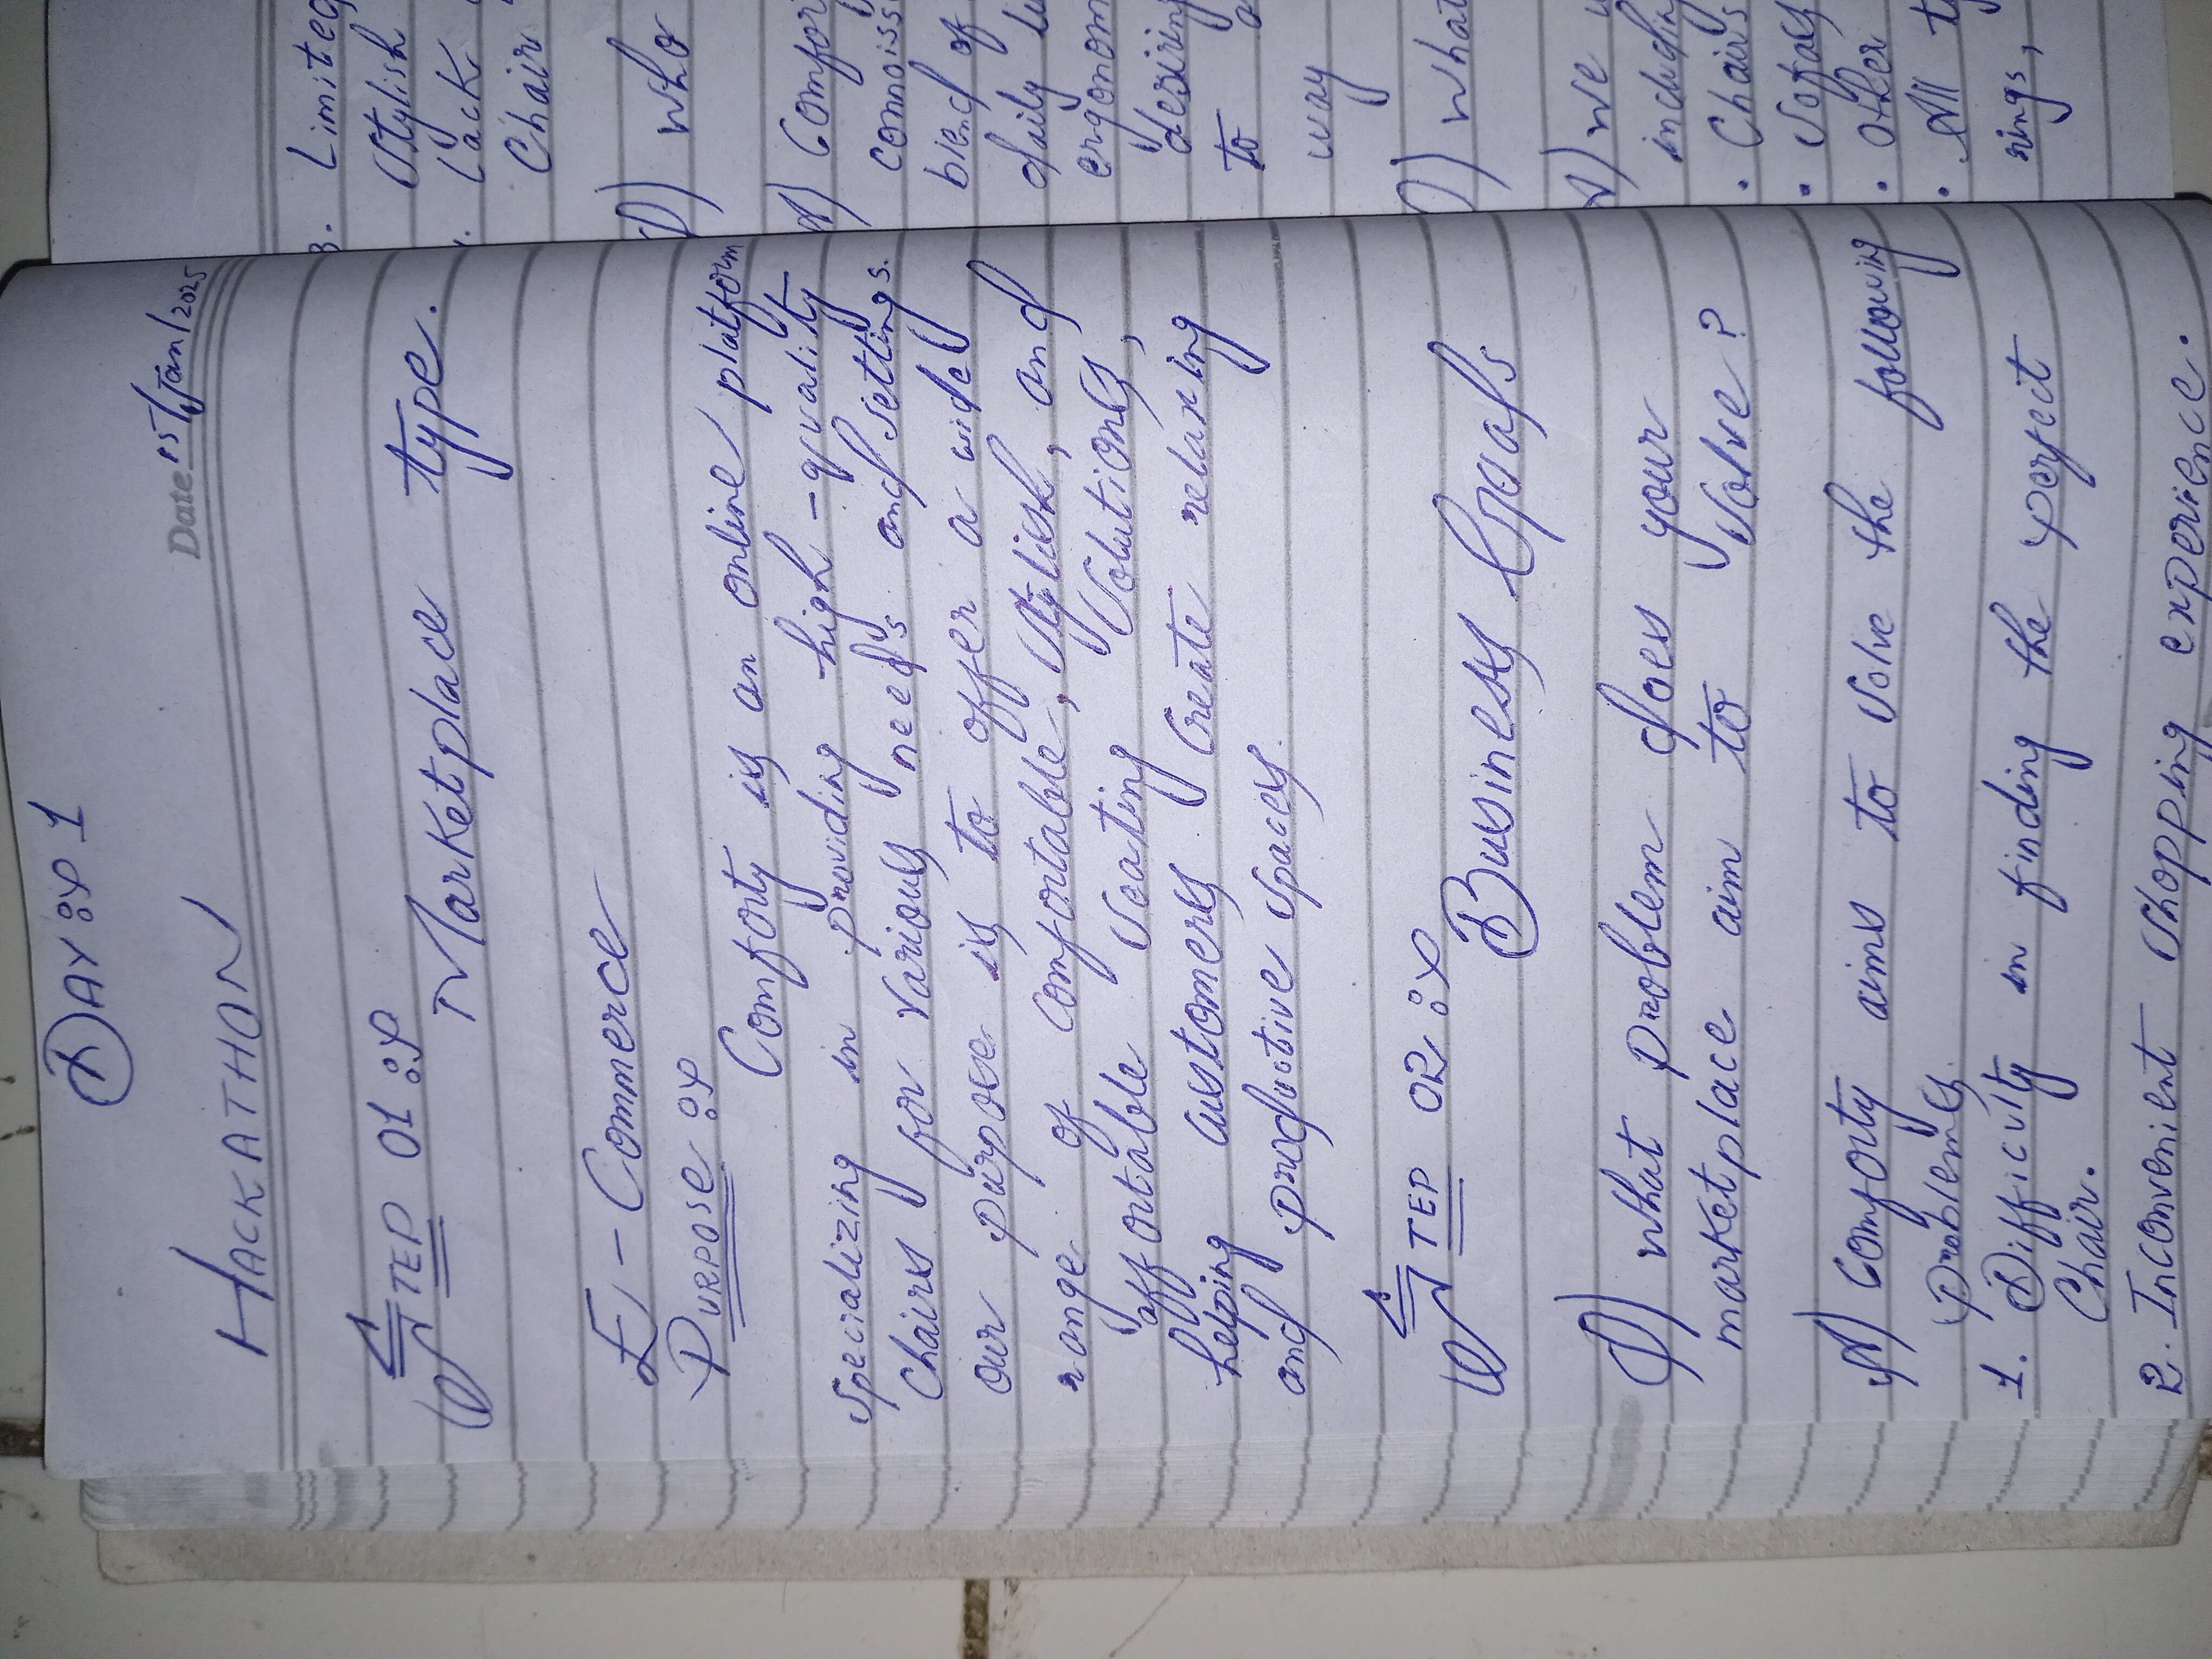 DAY 1
Date 15/Jan/2025
HACKATHON
STEP 01
Marketplace type.
E-Commerce
PURPOSE
Comforty is an online platform
specializing in providing high-quality
chairs for various needs and settings.
our purpose is to offer a wide
range of comfortable, stylish, and
affortable seating solutions,
helping customers create relaxing
and productive spaces.
STEP 02
Business Goals
Q) what problem does your
marketplace aim to solve?
A) Comforty aims to solve the following
problems.
1. Difficulty in finding the perfect
Chair.
2. Inconvenient shopping experience.
3. Limited
stylish
Lack
Chair
Q) who
A)
blend of
daily
desiring
to
way
Q) what
A) we
including
• Chairs
• Sofas
• other
• All
rings,